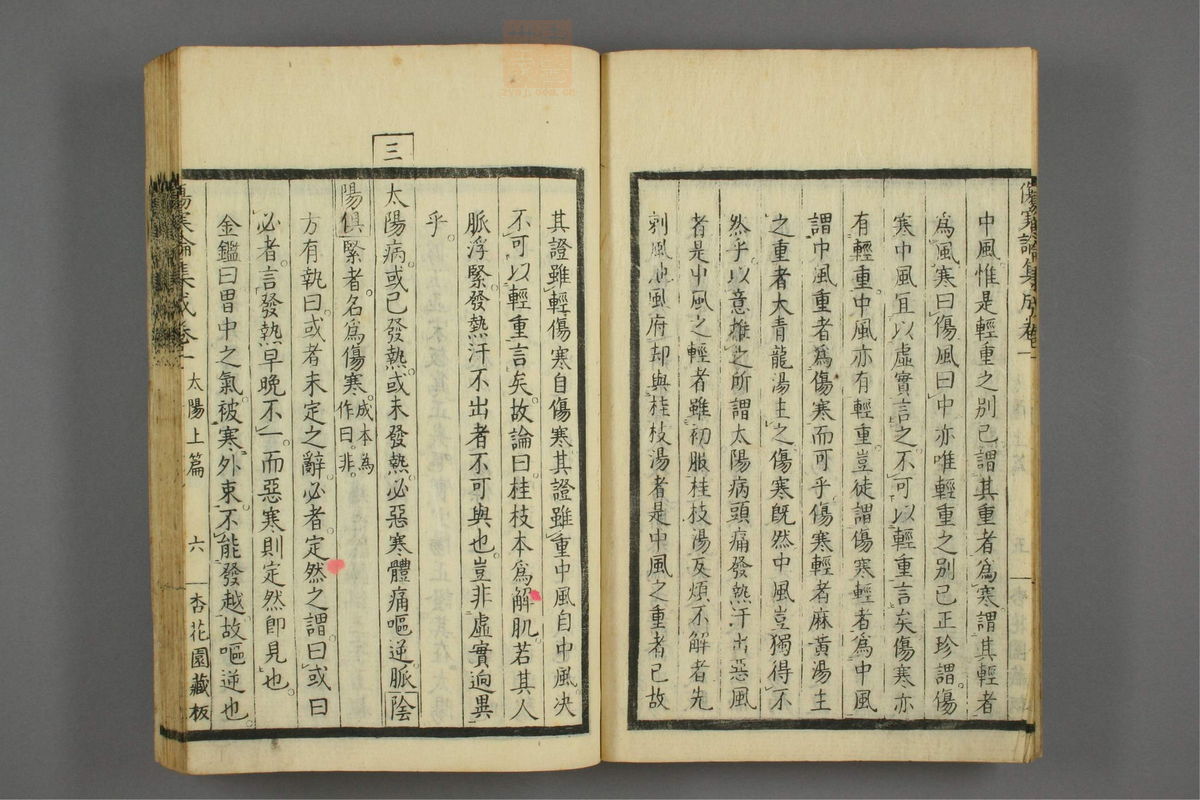 中風惟是輕重之別已謂其重者為寒謂其輕者
為風寒曰傷風曰中亦唯輕重之別已正珍謂傷
寒中風宜以虛實言之不可以輕重言矣傷寒亦
有輕重中風亦有輕重豈徒謂傷寒輕者為中風
謂中風重者為傷寒而可乎傷寒輕者麻黃湯主
之重者大青龍湯主之傷寒既然中風豈獨得不
然乎以意推之所謂太陽病頭痛發熱汗出惡風
者是中風之輕者雖初服桂枝湯反煩不解者先
刺風池風府却與桂枝湯者是中風之重者已故
傷寒論集成卷一
其證雖輕傷寒自傷寒其證雖重中風自中風決
不可以輕重言矣故論曰桂枝本為解肌若其人
脈浮緊發熱汗不出者不可與也豈非虛實逈異
乎
三
太陽病或已發熱或未發熱必惡寒體痛嘔逆脈陰
陽俱緊者名為傷寒成本為作曰非
方有執曰或者未定之辭必者定然之謂曰或曰
必者言發熱早晚不一而惡寒則定然即見也
金鑑曰胃中之氣被寒外束不能發越故嘔逆也
傷寒論集成卷一 太陽上篇 六 杏花園藏板